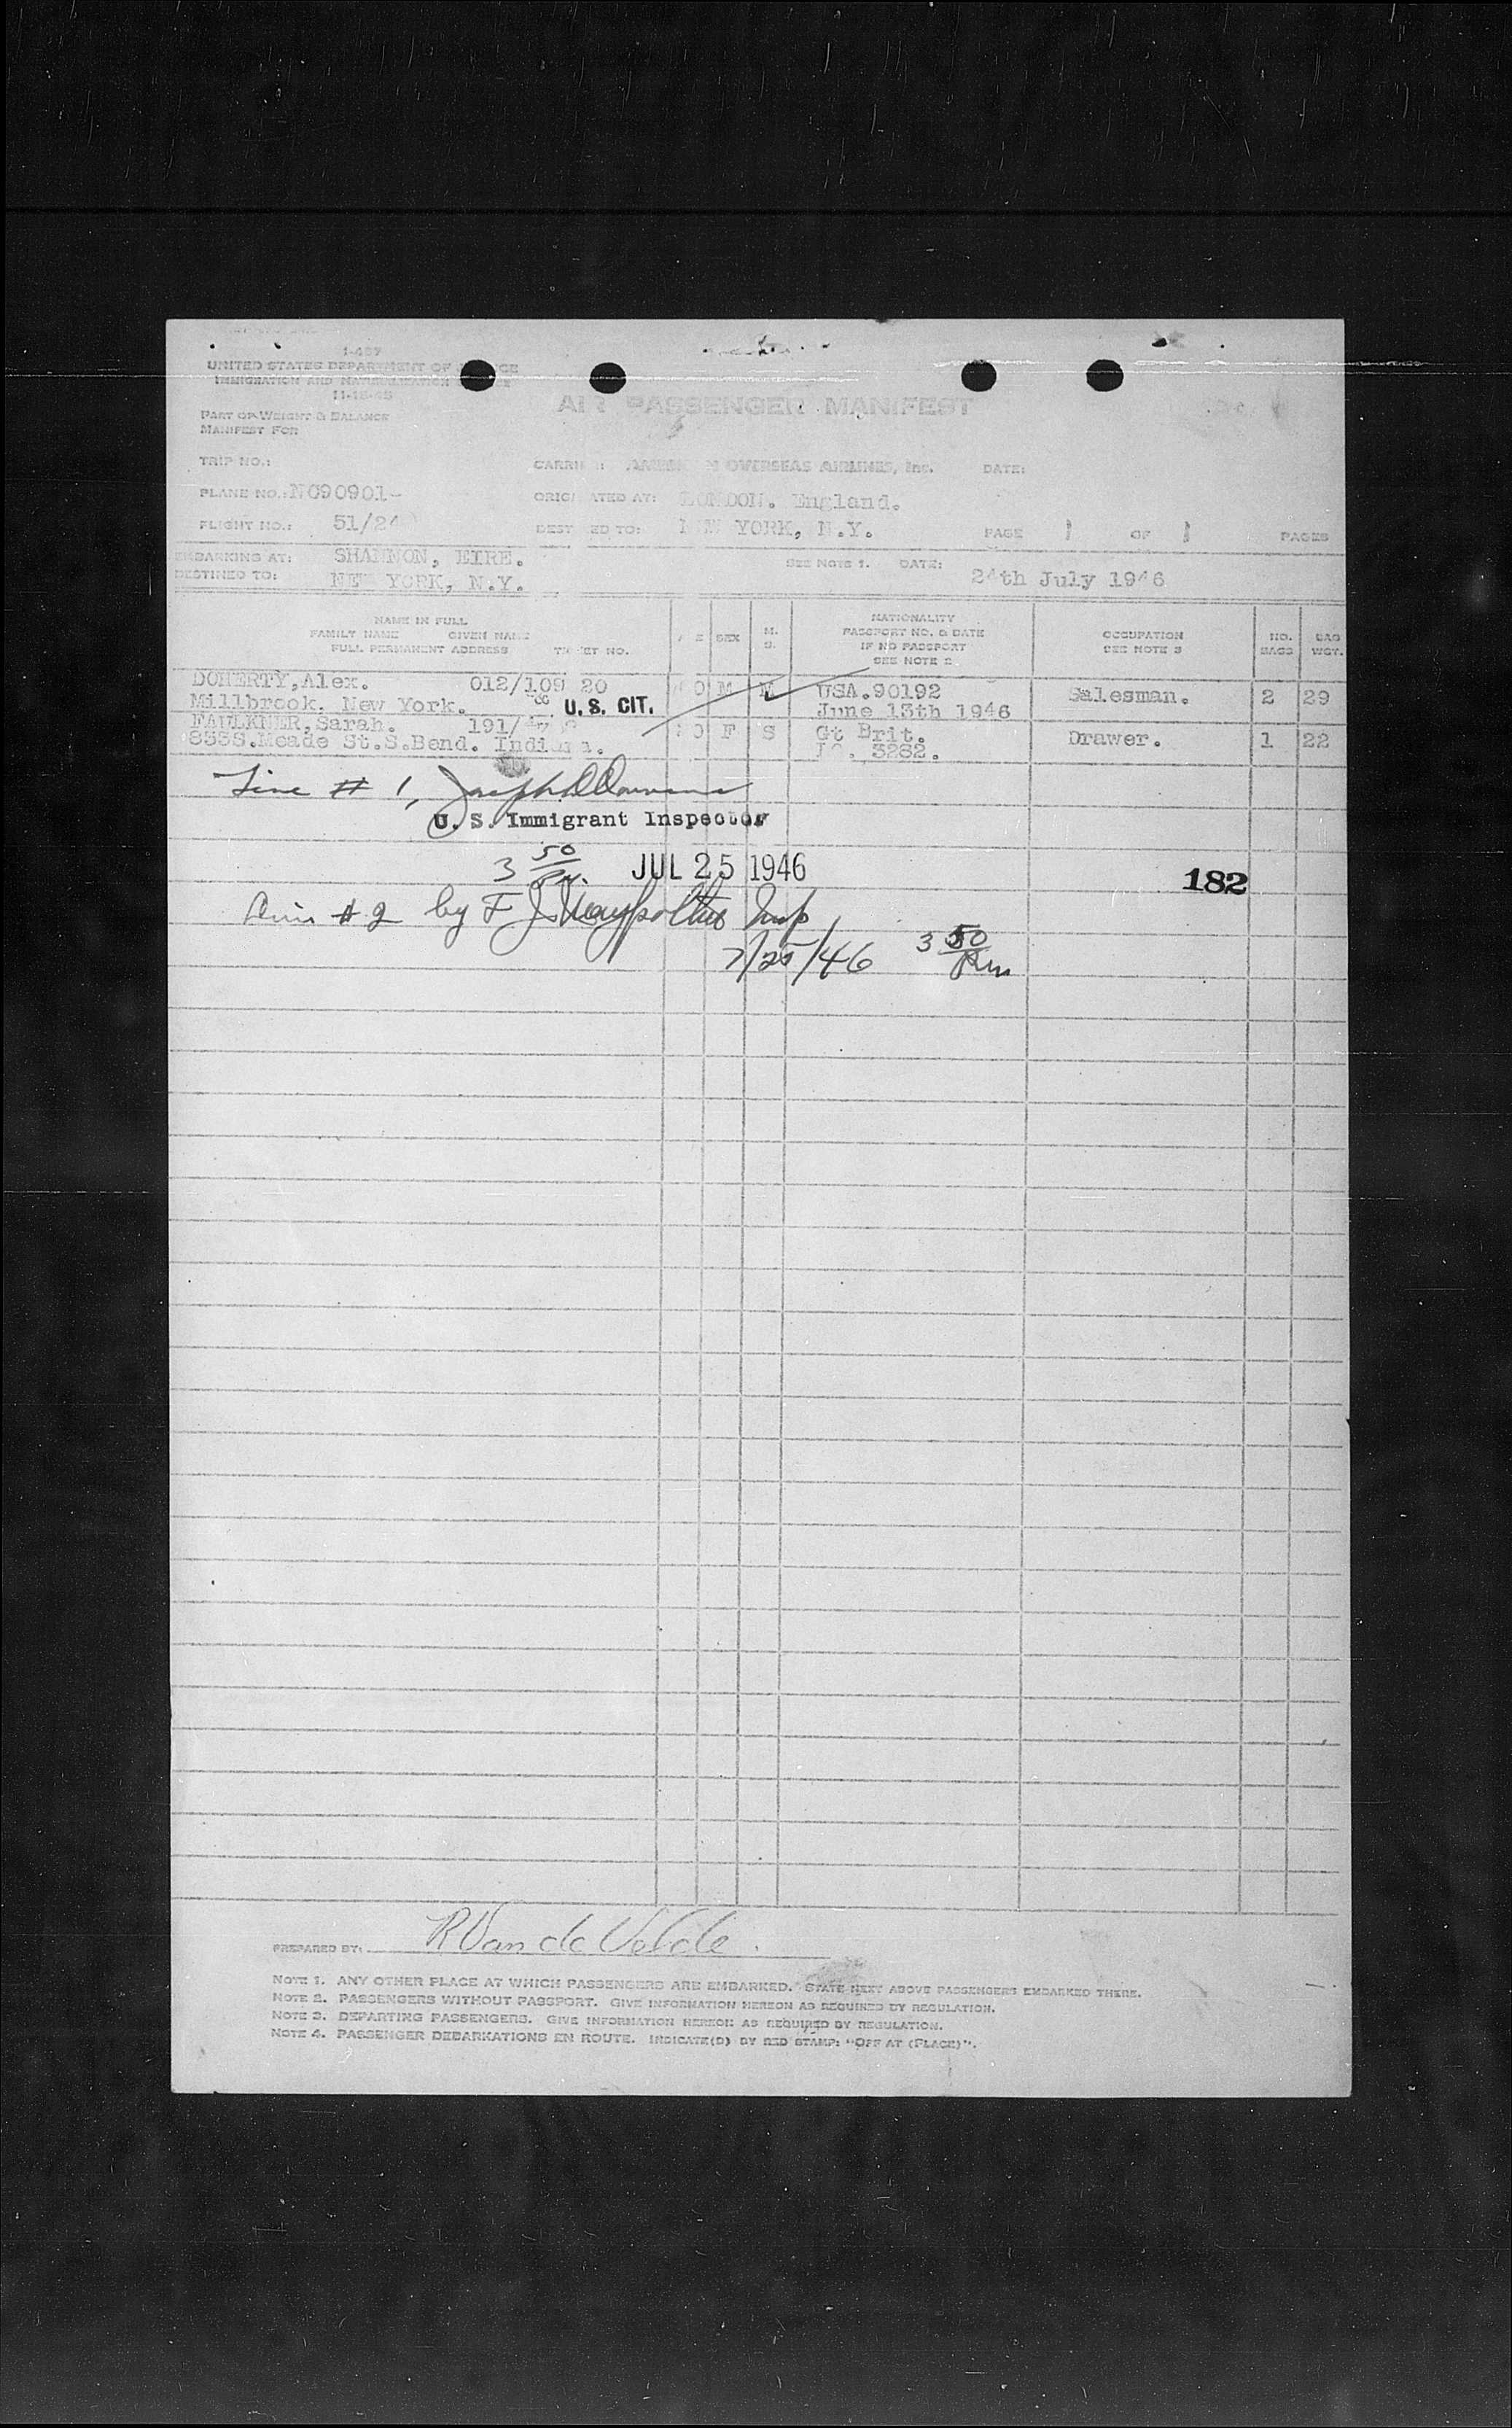 I-467
UNITED STATES DEPARTMENT OF
IMMIGRATION AND NATURALIZATION
11-15-45
AIR PASSENGER MANIFEST
PART OF WEIGHT & BALANCE
MANIFEST FOR
TRIP NO.: CARRIER: OVERSEAS AIRLINES, Inc. DATE:
PLANE NO.: NC90901- ORIGINATED AT: LONDON. England.
FLIGHT NO.: 51/24 DESTINED TO: NEW YORK, N.Y. PAGE 1 OF 1 PAGES
EMBARKING AT: SHANNON, EIRE. SEE NOTE 1. DATE: 24th July 1946
DESTINED TO: NEW YORK, N.Y.
NAME IN FULL
FAMILY NAME GIVEN NAME
FULL PERMANENT ADDRESS TICKET NO. AGE SEX M. S. NATIONALITY PASSPORT NO. & DATE IF NO PASSPORT SEE NOTE 2 OCCUPATION SEE NOTE 3 NO. BAGS BAG WGT.
DOHERTY,Alex. 012/109 20 M M USA.90192 Salesman. 2 29
Millbrook. New York. U.S. CIT. June 13th 1946
FAULKNER,Sarah. 191/ F S Gt Brit. Drawer. 1 22
833S.Meade St.S.Bend. Indiana. 3262.
Line # 1, Joseph
U. S. Immigrant Inspector
3 50 P.M. JUL 25 1946 182
# 2 by F J Insp
7/25/46 3 50 P.m
PREPARED BY: R Van de Velde.
NOTE 1. ANY OTHER PLACE AT WHICH PASSENGERS ARE EMBARKED. STATE NEXT ABOVE PASSENGERS EMBARKED THERE.
NOTE 2. PASSENGERS WITHOUT PASSPORT. GIVE INFORMATION HEREON AS REQUIRED BY REGULATION.
NOTE 3. DEPARTING PASSENGERS. GIVE INFORMATION HEREON AS REQUIRED BY REGULATION.
NOTE 4. PASSENGER DEBARKATIONS EN ROUTE. INDICATE(D) BY RED STAMP: "OFF AT (PLACE)".